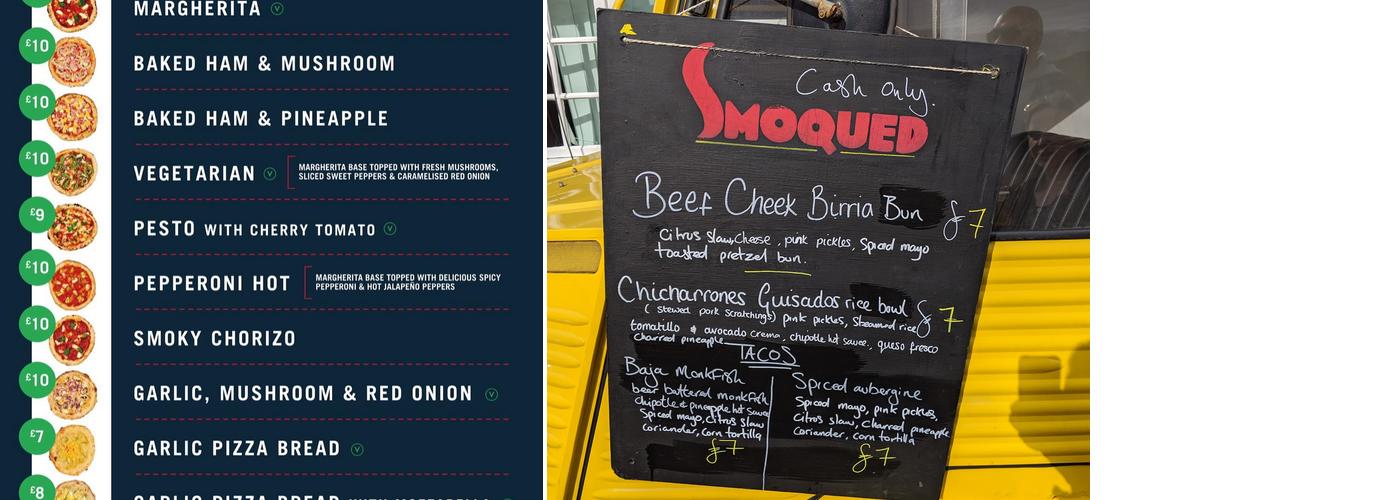 MARGHERITA V
£10
BAKED HAM & MUSHROOM
£10
BAKED HAM & PINEAPPLE
£10
VEGETARIAN V
MARGHERITA BASE TOPPED WITH FRESH MUSHROOMS,
SLICED SWEET PEPPERS & CARAMELISED RED ONION
£9
PESTO WITH CHERRY TOMATO V
£10
PEPPERONI HOT
MARGHERITA BASE TOPPED WITH DELICIOUS SPICY
PEPPERONI & HOT JALAPEÑO PEPPERS
£10
SMOKY CHORIZO
£10
GARLIC, MUSHROOM & RED ONION V
£7
GARLIC PIZZA BREAD V
£8
GARLIC PIZZA BREAD
Cash only.
SMOQUED
Beef Cheek Birria Bun £7
Citrus slaw, Cheese, pink pickles, Spiced mayo
toasted pretzel bun.
Chicharrones Guisados rice bowl £7
(stewed pork Scratchings) pink pickles, Steamed rice
tomatillo & avocado crema, chipotle hot sauce, queso fresco
charred pineapple
TACOS
Baja Monkfish
beer battered monkfish
chipotle & pineapple hot sauce
Spiced mayo, Citrus slaw
Coriander, corn tortilla
£7
Spiced aubergine
Spiced mayo, pink pickles,
Citrus slaw, Charred pineapple
Coriander, corn tortilla
£7